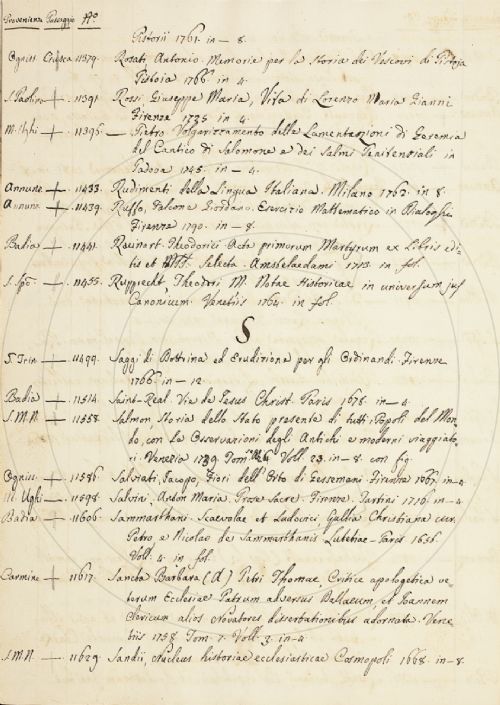 Provenienza Passaggio No
Pistorii 1761. in - 8.
Ogniss. Crusca 11379. Rosati, Antonio. Memorie per la Storia dei Vescovi di Pistoja
Pistoia 1766. in 4.
S. Paolino 11391. Rossi, Giuseppe Maria, Vita di Lorenzo Maria Gianni
Firenze 1735. in 4.
M. Ughi 11395. — Pietro Volgarizzamento delle Lamentazioni di Geremia
del Cantico di Salomone e dei Salmi Penitenziali in
Padova 1745. in - 4.
Annunz. 11433. Rudimenti della Lingua Italiana. Milano 1762. in 8.
Annunz. 11439. Ruffo, Falcone Giordano. Esercizio Mathematico in
Firenze 1790. in - 8.
Badia 11441. Ruinart. Theodorici Acta primorum Martyrum ex Libris edi-
tis et MSS. Selecta. Amstelaedami 1713. in fol.
S. Spo. 11455. Rupprecht, Theodori M. Notae Historicae in universum jus
Canonicum. Venetiis 1764. in fol.
S
S. Trin. 11499. Saggi di Dottrina ed Erudizione per gli Ordinandi. Firenze
1766. in - 12.
Badia 11514. Saint-Real. Vie de Jesus Christ. Paris 1678. in - 4.
S.M.N. 11558. Salmon, Storia dello Stato presente di tutti i Popoli del Mon-
do, con le Osservazioni degli Antichi e moderni viaggiato-
ri. Venezia 1739. Tom. Voll. 23. in - 8. con fig.
Ogniss. 11586. Salviati, Jacopo, Fiori dell' Orto di Gessemani. Firenze 1667. in - 4.
M. Ughi 11598. Salvini, Anton Maria. Prose Sacre. Firenze. Tartini 1716. in - 4.
Badia 11606. Sammarthani. Scaevolae et Ludovici, Gallia Christiana cur.
Petro, e Nicolao de Sammarthanis. Lutetiae - Paris 1656.
Voll. 4. in fol.
Carmine 11617. Sancta Barbara (A) Petri Thomae, Critice apologetica ve-
terum Ecclesiae Patrum adversus Dallaeum, et Ioannem
Clericum alios Novatores dissertationibus adornata. Vene-
tiis 1758. Tom. 7. Voll. 3. in - 4.
S.M.N. 11629. Sandii, Nucleus historiae ecclesiasticae Cosmopoli 1668. in - 8.